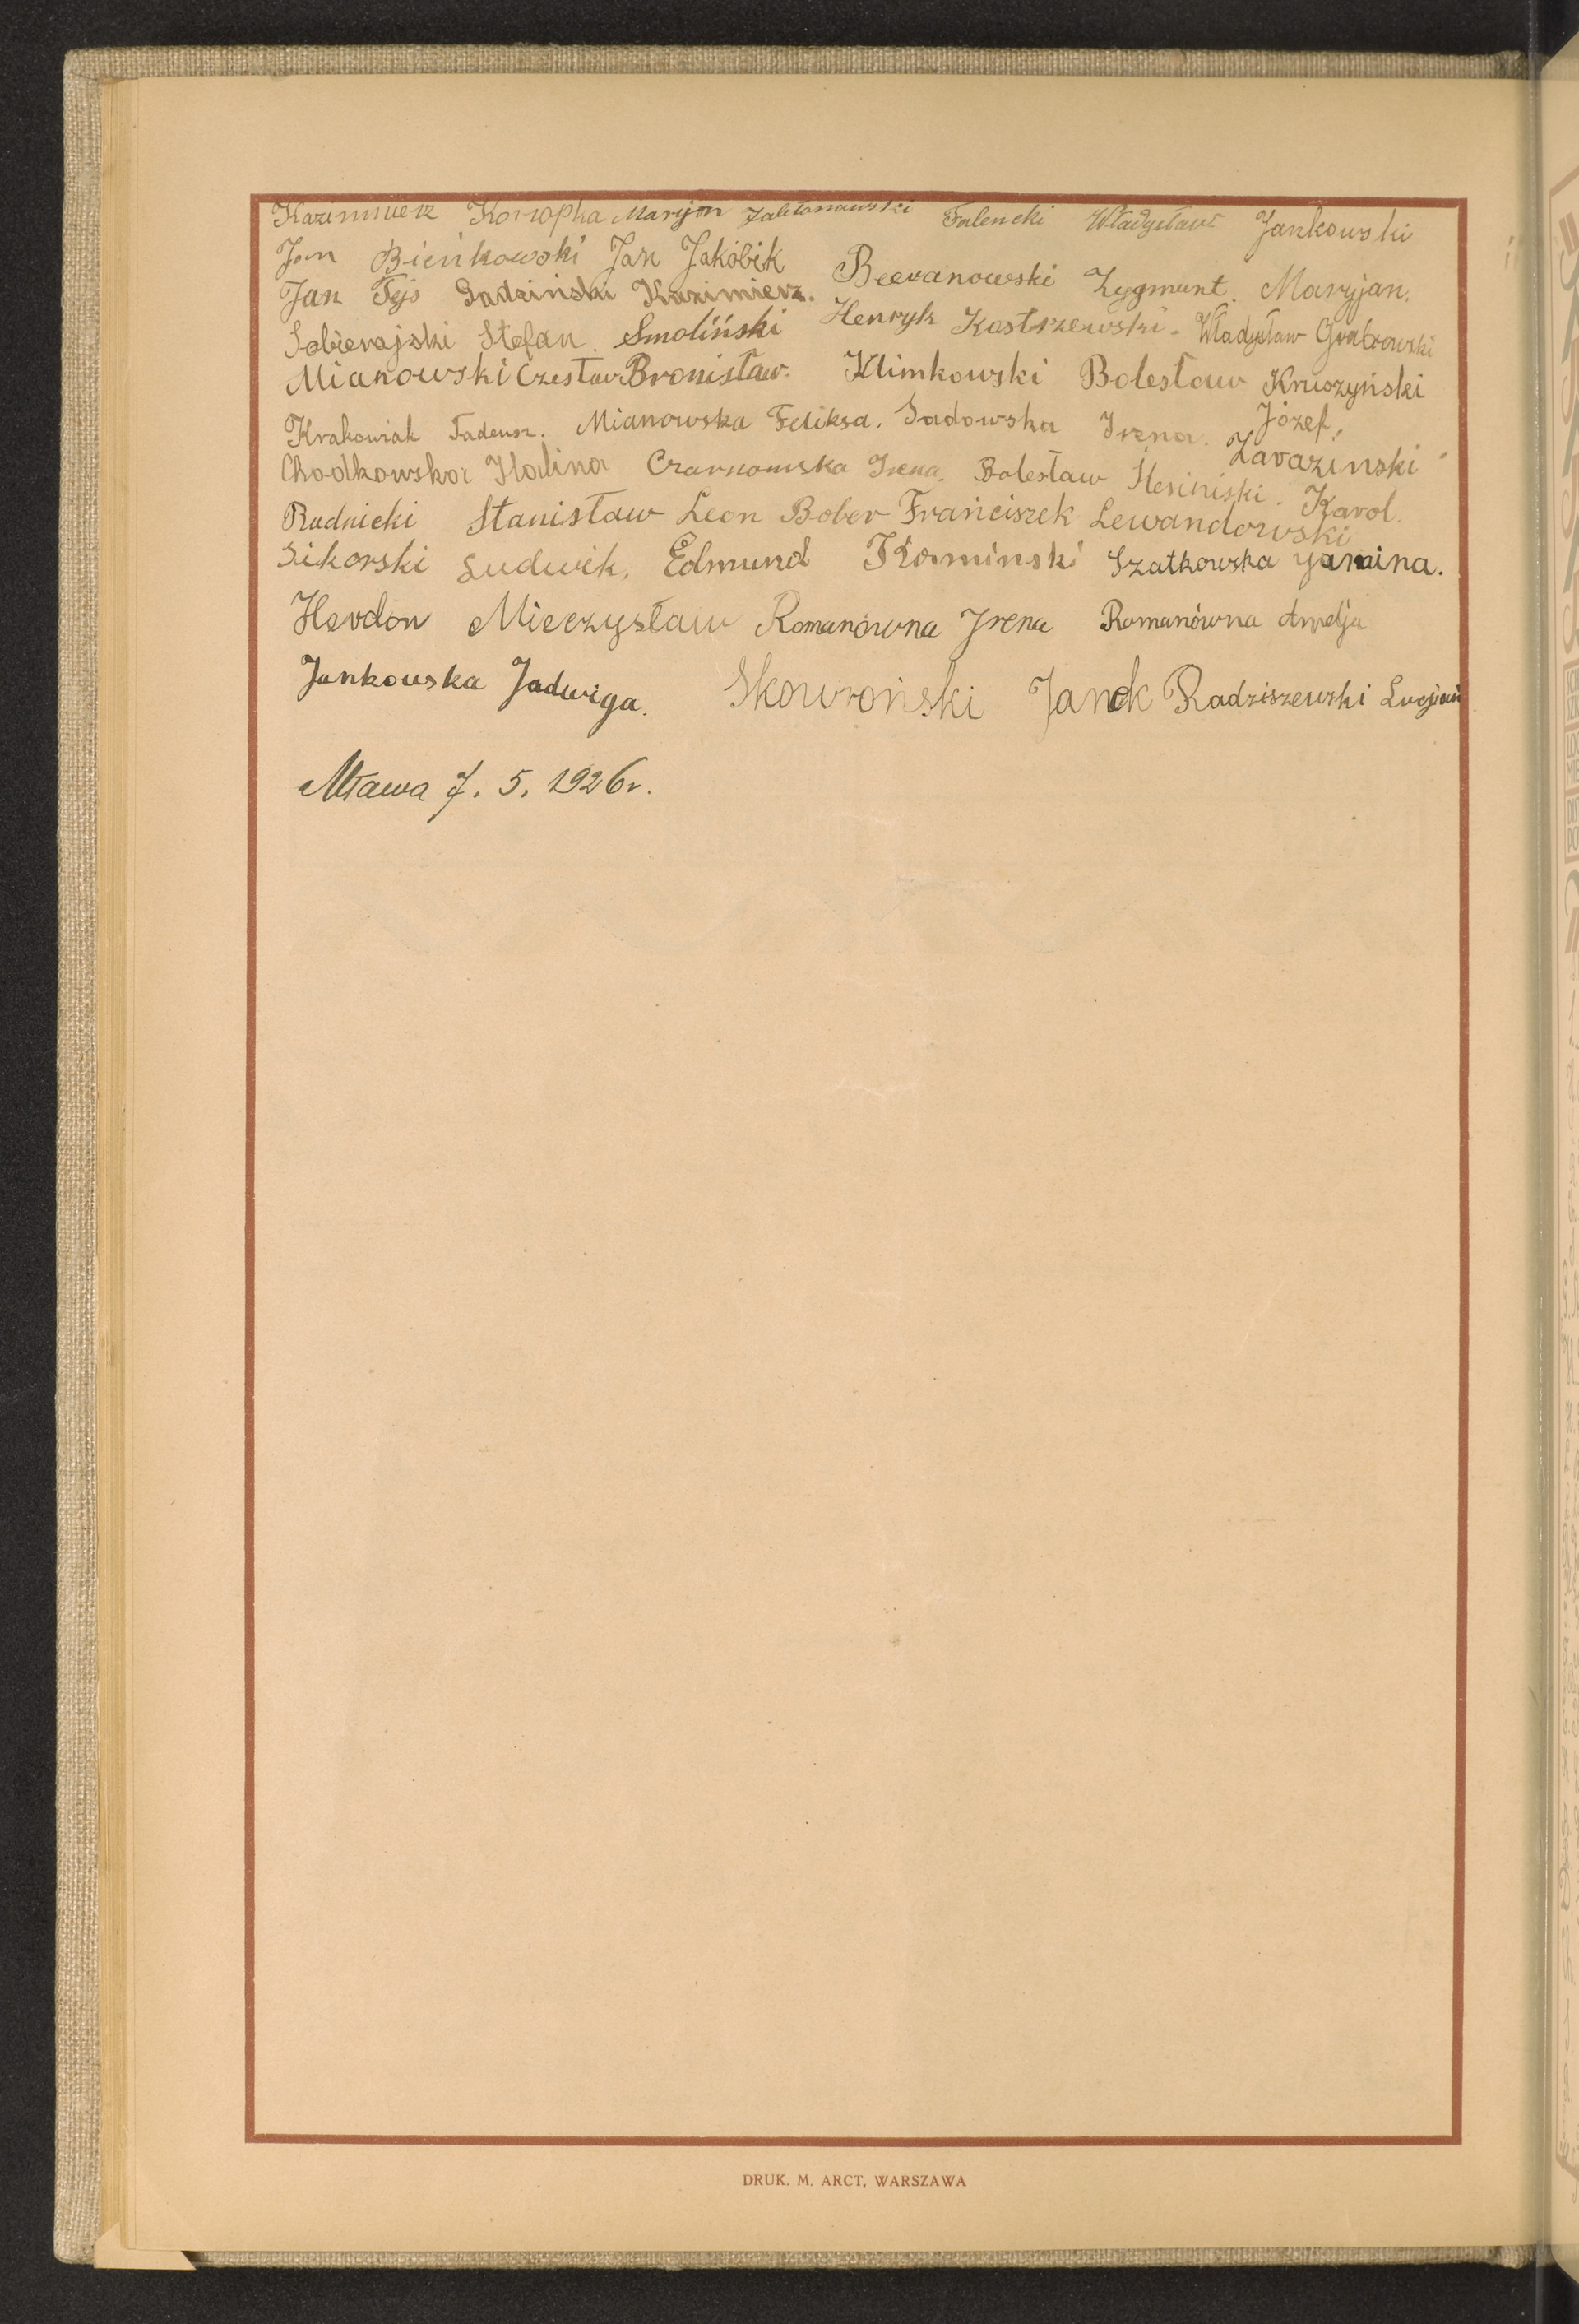 Kazimierz Konopka Maryjan Falencki Władysław Jankowski
Jan Bieńkowski Jan Jakóbik Beeranowski Zygmunt. Maryjan.
Jan Tyjs Gadziński Kazimierz. Henryk Kostrzewski. Władysław Grabowski
Sobierajski Stefan. Smoliński Bronisław. Klimkowski Bolesław Kruszyński Józef.
Mianowski Czesław
Krakowiak Tadeusz. Mianowska Feliksa. Sadowska Irena. Zaraziński Karol.
Chodkowska Halina Czarnowska Irena. Bolesław
Rudnicki Stanisław Leon Bober Franciszek Lewandowski
Sikorski Ludwik, Edmund Kamiński Szatkowska Janina.
Herdon Mieczysław Romanówna Irena Romanówna
Jankowska Jadwiga. Skowroński Janek Radziszewski Lucjan
Mława 7. 5. 1926r.
DRUK. M. ARCT, WARSZAWA